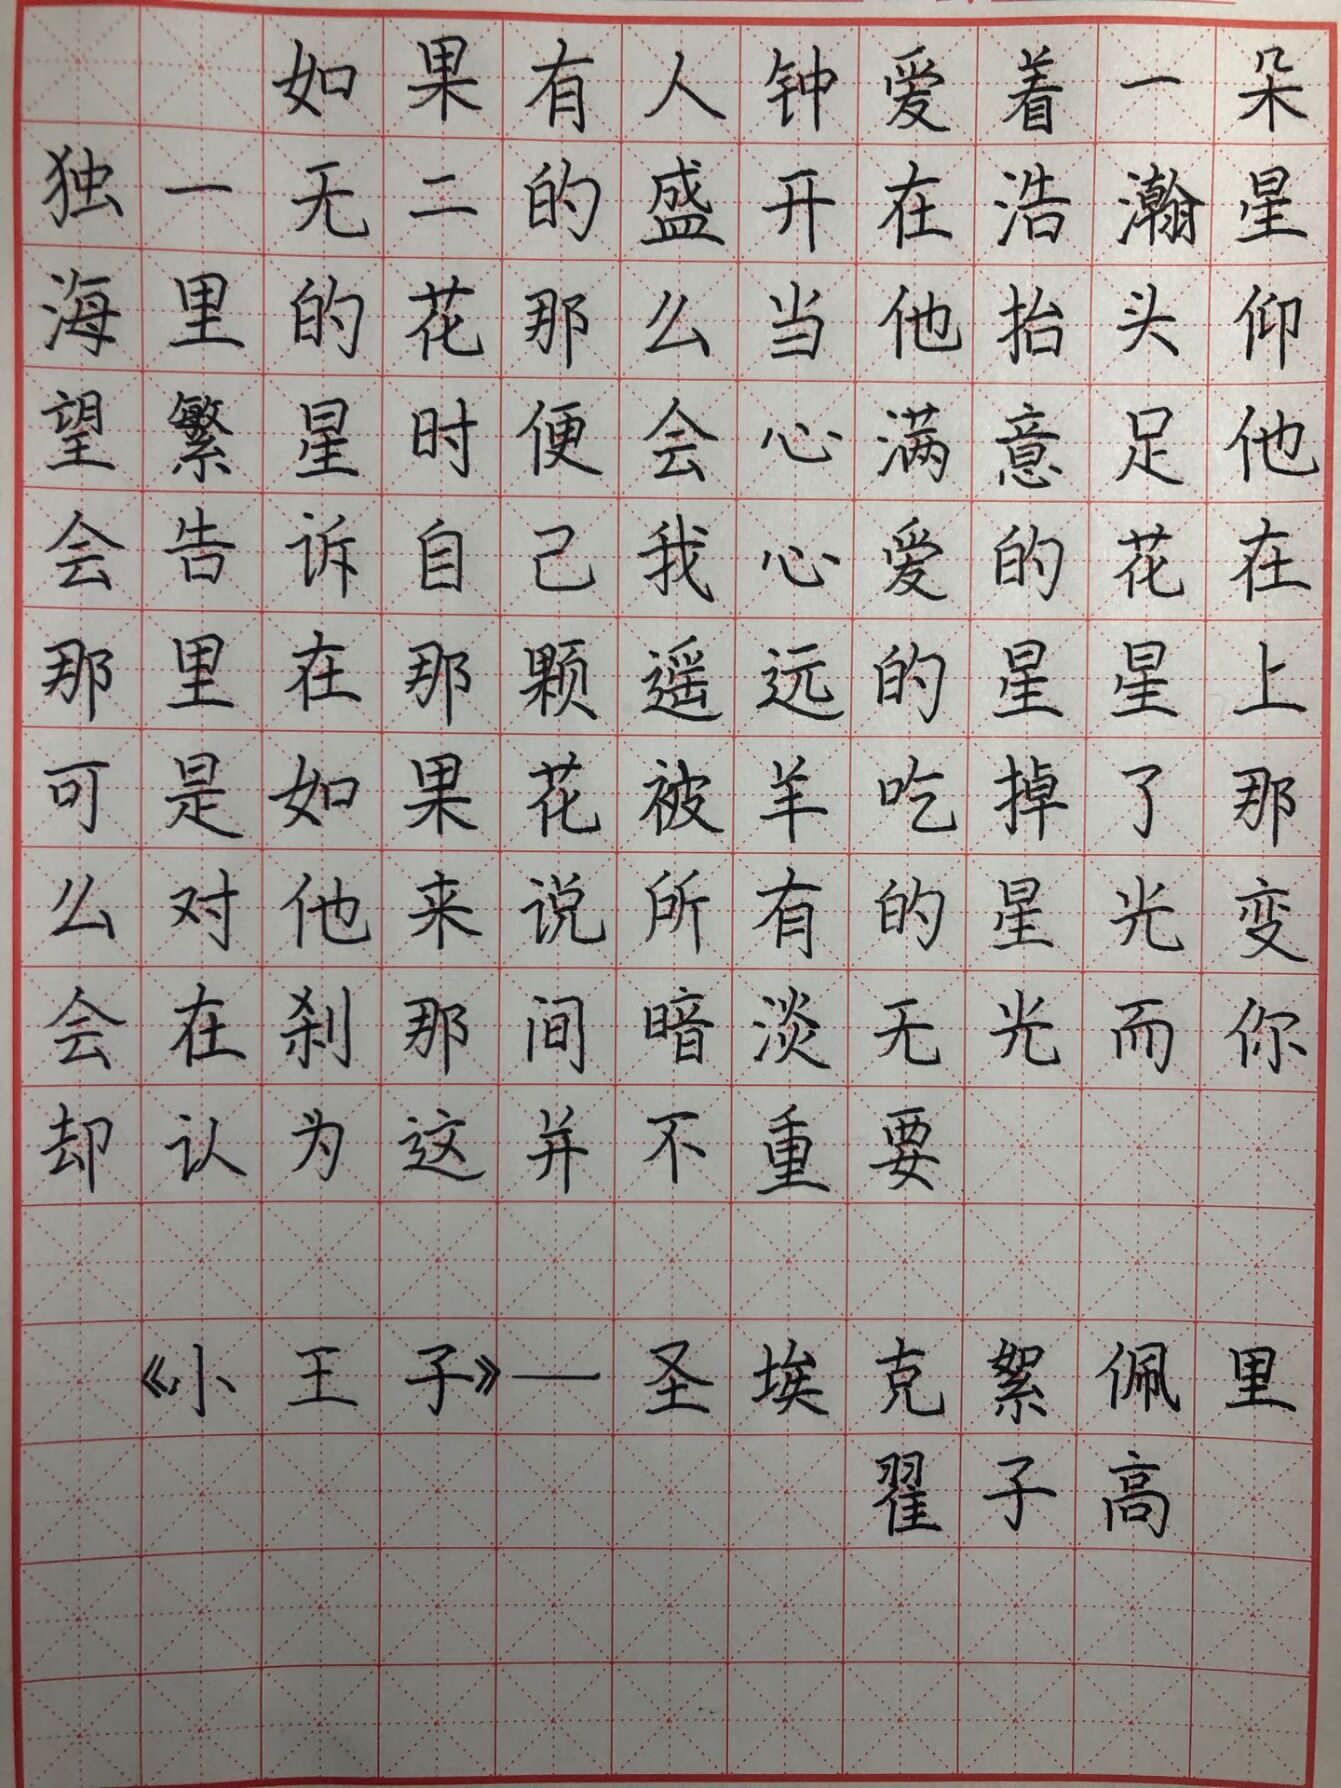 如果有人钟爱着一朵
独一无二的盛开在浩瀚星
海里的花那么当他抬头仰
望繁星时便会心满意足他
会告诉自己我心爱的花在
那里在那颗遥远的星星上
可是如果花被羊吃掉了那
么对他来说所有的星光变
会在刹那间暗淡无光而你
却认为这并不重要
《小王子》—圣埃克絮佩里
翟子高